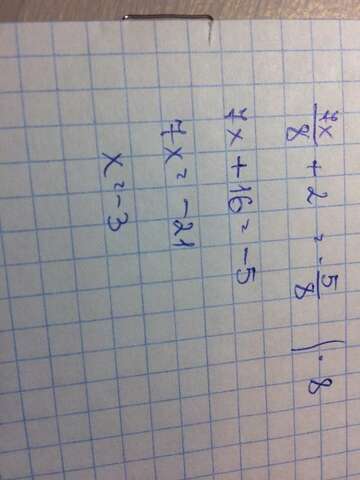 7x/8 + 2 = -5/8 | · 8
7x + 16 = -5
7x = -21
x = -3